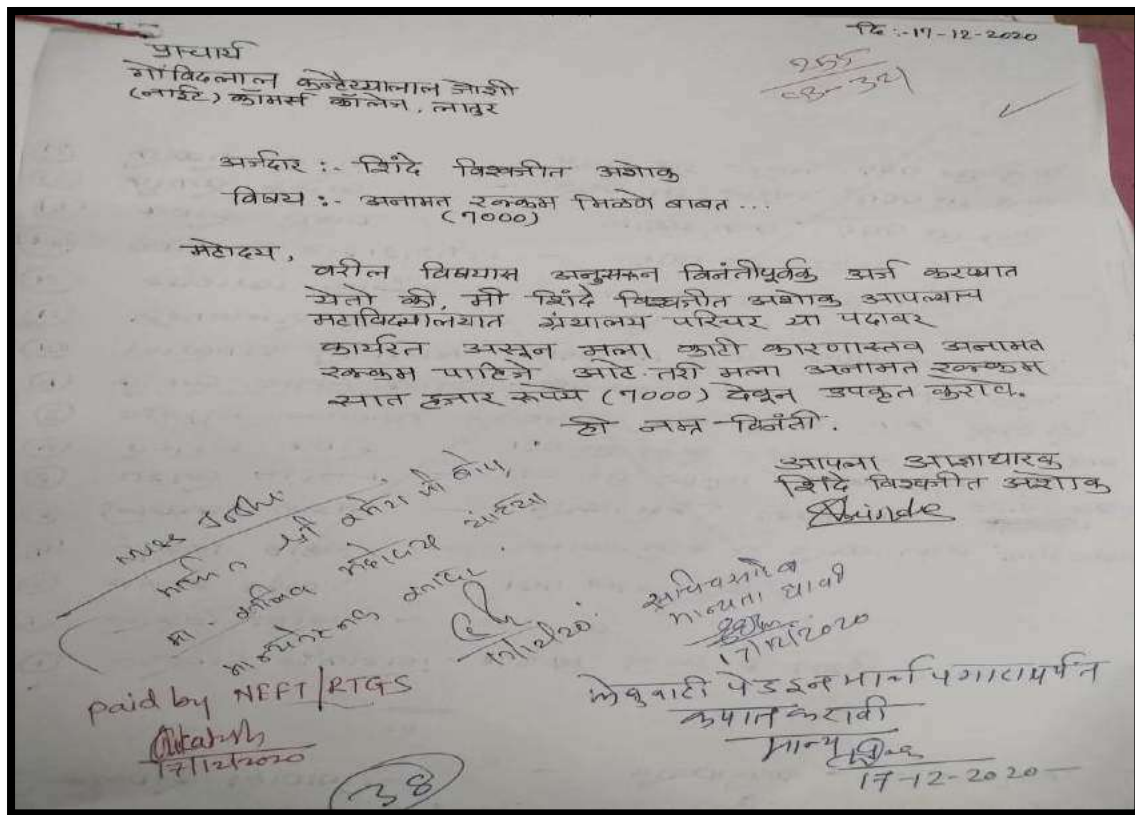 दि :-17-12-2020
प्राचार्य
गोविंदलाल कन्हैय्यालाल जोशी
(नाईट) कॉमर्स कॉलेज, लातुर
अर्जदार :- शिंदे विश्वजीत अशोक
विषय :- अनामत रक्कम मिळणे बाबत ...
(7000)
महोदय,
वरील विषयास अनुसरून विनंतीपूर्वक अर्ज करण्यात
येतो की, मी शिंदे विश्वजीत अशोक आपल्याच
महाविद्यालयात ग्रंथालय परिचर या पदावर
कार्यरत असून मला काही कारणास्तव अनामत
रक्कम पाहिजे आहे. तरी मला अनामत रक्कम
सात हजार रूपये (7000) देवून उपकृत करावे.
ही नम्र विनंती.
आपला आज्ञाधारक
शिंदे विश्वजीत अशोक
Shinde
मा. सचिव महोदय यांच्या
मान्यतेस्तव सादर
17/12/20
सचिवसाहेब
मान्यता द्यावी
17/12/2020
paid by NEFT/RTGS
17/12/2020
पेड इन मार्च पगारापर्यंत
कपात करावी
मान्य
17-12-2020
38